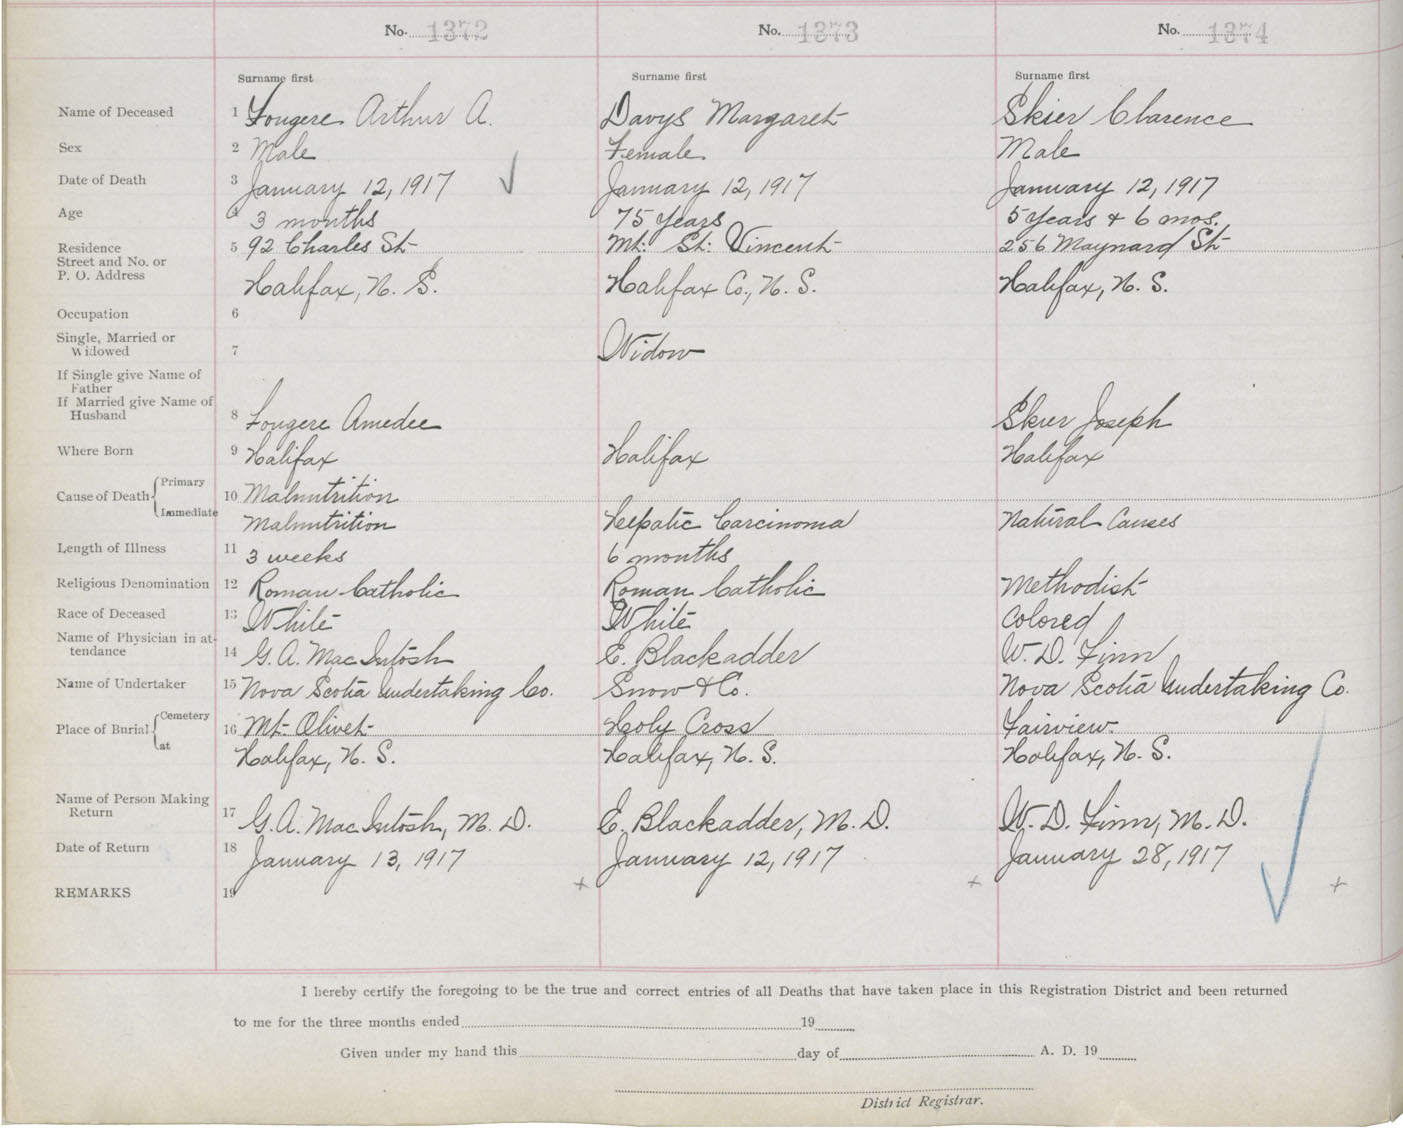 No. 1372 No. 1373 No. 1374
Surname first Surname first Surname first
Name of Deceased 1 Fougere Arthur A. Davys Margaret Skier Clarence
Sex 2 Male Female Male
Date of Death 3 January 12, 1917 January 12, 1917 January 12, 1917
Age 4 3 months 75 years 5 years + 6 mos.
Residence 5 92 Charles St Mt: St: Vincent 256 Maynard St
Street and No. or
P. O. Address Halifax, N. S. Halifax Co., N. S. Halifax, N. S.
Occupation 6
Single, Married or
Widowed 7 Widow
If Single give Name of
Father
If Married give Name of
Husband 8 Fougere Amedee Skier Joseph
Where Born 9 Halifax Halifax Halifax
Primary
Cause of Death 10 Malnutrition
Immediate Malnutrition Hepatic Carcinoma Natural Causes
Length of Illness 11 3 weeks 6 months
Religious Denomination 12 Roman Catholic Roman Catholic Methodist
Race of Deceased 13 White White Colored
Name of Physician in at-
tendance 14 G. A. MacIntosh E. Blackadder W. D. Finn
Name of Undertaker 15 Nova Scotia Undertaking Co. Snow & Co. Nova Scotia Undertaking Co.
Cemetery
Place of Burial 16 Mt. Olivet Holy Cross Fairview.
at Halifax, N. S. Halifax, N. S. Halifax, N. S.
Name of Person Making
Return 17 G. A. MacIntosh, M. D. E. Blackadder, M. D. W. D. Finn, M. D.
Date of Return 18 January 13, 1917 January 12, 1917 January 28, 1917
REMARKS 19
I hereby certify the foregoing to be the true and correct entries of all Deaths that have taken place in this Registration District and been returned
to me for the three months ended 19
Given under my hand this day of A. D. 19
District Registrar.